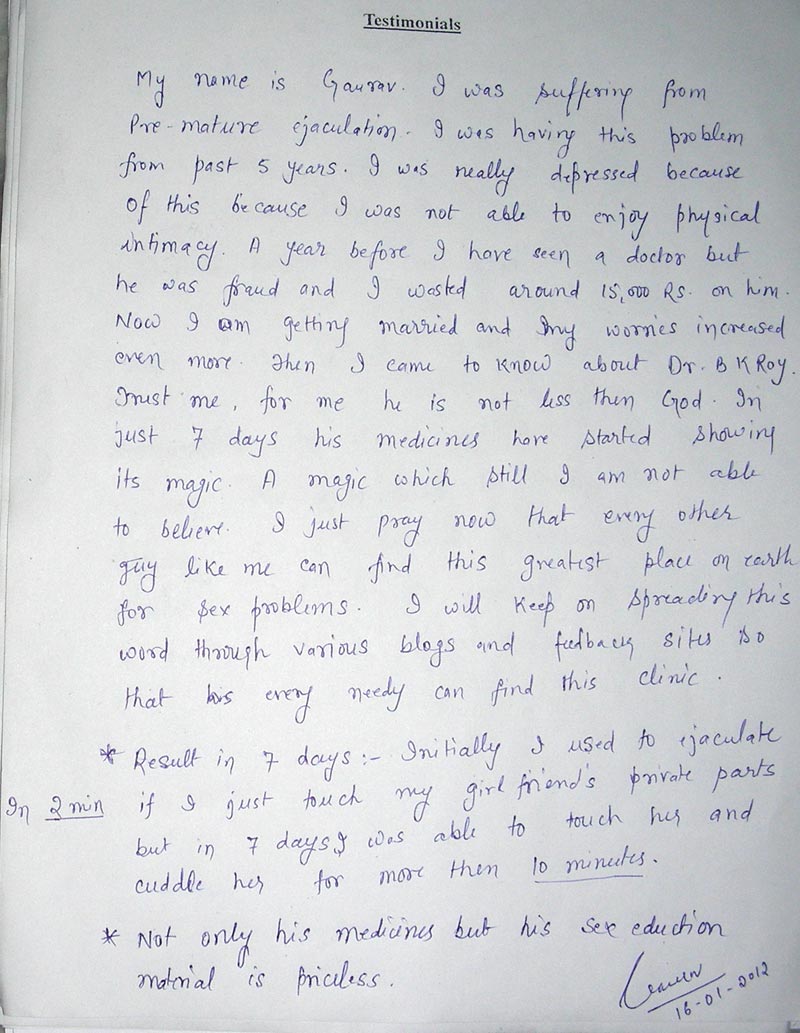 Testimonials
My name is Gaurav. I was suffering from
Pre-mature ejaculation. I was having this problem
from past 5 years. I was really depressed because
of this because I was not able to enjoy physical
intimacy. A year before I have seen a doctor but
he was fraud and I wasted around 15,000 Rs. on him.
Now I am getting married and my worries increased
even more. Then I came to know about Dr. B K Roy.
Trust me, for me he is not less then God. In
just 7 days his medicines have started showing
its magic. A magic which still I am not able
to believe. I just pray now that every other
guy like me can find this greatest place on earth
for sex problems. I will keep on spreading this
word through various blogs and feedback sites so
that every needy can find this clinic.
* Result in 7 days :- Initially I used to ejaculate
In 2 min if I just touch my girl friend's private parts
but in 7 days I was able to touch her and
cuddle her for more then 10 minutes.
* Not only his medicines but his sex eduction
material is priceless.
Gaurav
16-01-2012